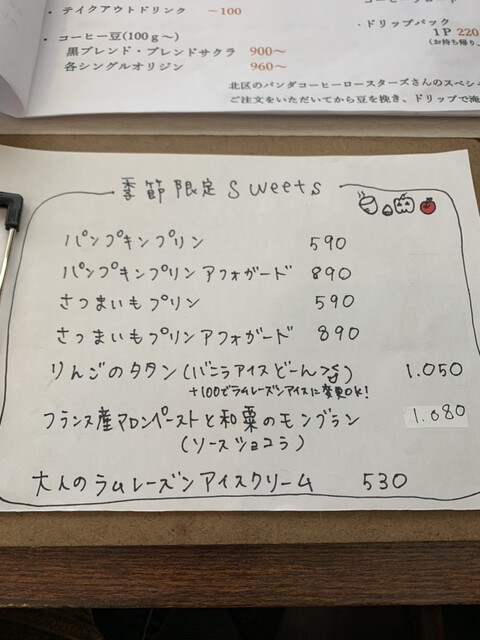 ・テイクアウトドリンク －100
・コーヒー豆(100g～)
黒ブレンド・ブレンドサクラ 900～
各シングルオリジン 960～
・ドリップパック
1P 220
(お持ち帰り、
北区のパンダコーヒーロースターズさんのスペシ
ご注文をいただいてから豆を挽き、ドリップで淹
季節限定 Sweets
パンプキンプリン 590
パンプキンプリンアフォガード 890
さつまいもプリン 590
さつまいもプリンアフォガード 890
りんごのタタン(バニラアイスどーん) 1.050
+100でラムレーズンアイスに変更OK!
フランス産マロンペーストと和栗のモンブラン 1.080
(ソースショコラ)
大人のラムレーズンアイスクリーム 530